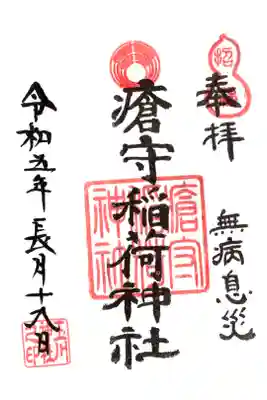 奉拝
無病息災
瘡守稲荷神社
瘡守
稲荷
神社
令和五年長月十八日